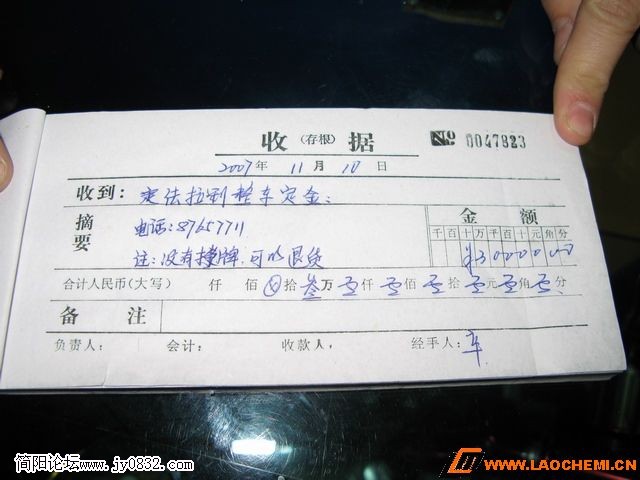 收(存根)据 № 0047823
2007年 11月 10日
收到：定法拉利整车定金：
摘要 电话：87657711
注：没有撞牌，可以退货
金额
千百十万千百十元角分
¥30000000
合计人民币(大写) 仟 佰 ⊗拾 叁万 零仟 零佰 零拾 零元 零角 零分
备注
负责人： 会计： 收款人： 经手人：车
简阳论坛www.jy0832.com
WWW.LAOCHEMI.CN